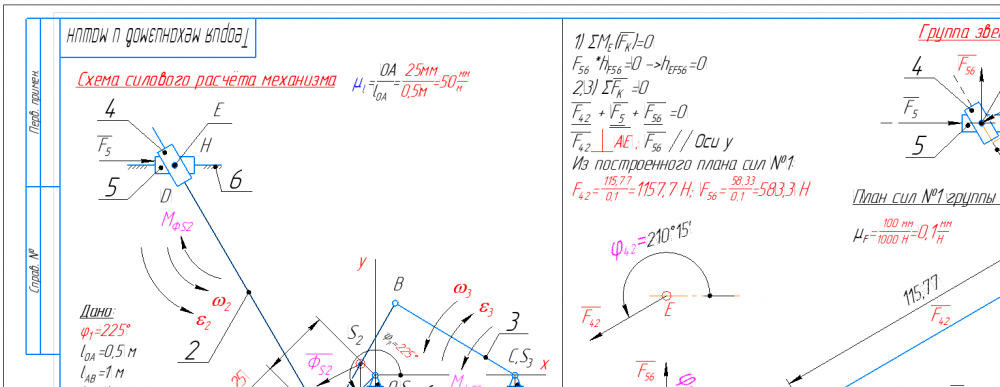 Теория механизмов и машин
Перв. примен.
Справ. №
Схема силового расчёта механизма
μl = OA / lOA = 25мм / 0,5м = 50 мм/м
4
E
F5
H
5
6
D
MФS2
ω2
ε2
2
Дано:
φ1=225°
lOA=0,5 м
lAB=1 м
25
y
B
S2
φ1=225°
ФS2
ω3
ε3
3
C,S3
x
1) ΣME(FK)=0
F56 *hF56=0 ->hEF56=0
2,3) ΣFK =0
F42 + F5 + F56 =0
F42 ⊥ AE ; F56 // Оси y
Из построенного плана сил №1:
F42 = 115,77 / 0,1 = 1157,7 Н; F56 = 58,33 / 0,1 = 583,3 Н
φ42=210°15'
F42
E
F56
φ
Группа зве
F56
4
F5
5
План сил №1 группы
μF = 100 мм / 1000 Н = 0,1 мм/Н
115,77
F42